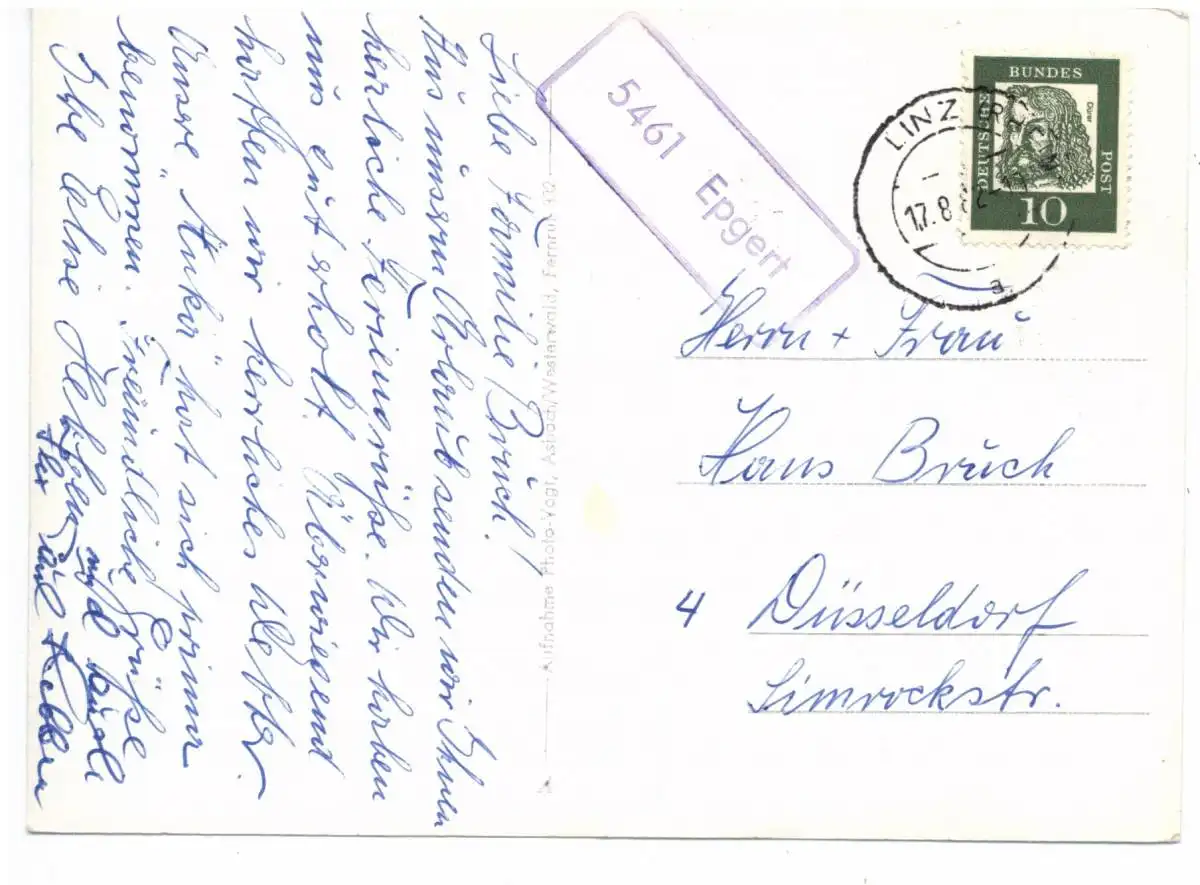 Liebe Familie Bruch!
Aus unserm Urlaub senden wir Ihnen
herzliche Feriengrüße. Wir haben
uns gut erholt. Überwiegend
hatten wir herrliches Wetter.
Unsere "Anka" hat sich prima
benommen. Freundliche Grüße
Ihre Else
und
und
Aufnahme Photo-Vogt, Asbach/Westerwald, Fernruf 302
5461 Epgert
LINZ
17.8.
DEUTSCHE
BUNDES
POST
Dürer
10
Herrn + Frau
Hans Bruch
4 Düsseldorf
Simrockstr.